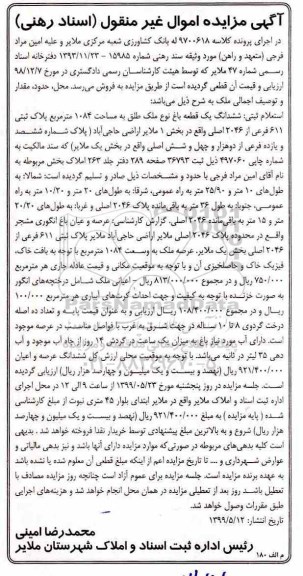 آگهی مزایده اموال غیر منقول (اسناد رهنی)
در اجرای پرونده کلاسه ۹۷۰۰۶۱۸ له بانک کشاورزی شعبه مرکزی ملایر و علیه امین مراد
فرجی (متعهد و راهن) مورد وثیقه سند رهنی شماره ۱۵۹۸۵ - ۱۳۹۳/۱۱/۲۳ دفترخانه اسناد
رسمی شماره ۴۷ ملایر که توسط هیئت کارشناسان رسمی دادگستری در مورخ ۹۸/۱۲/۷
ارزیابی و قیمت آن قطعی گردیده است از طریق مزایده به فروش می‌رسد. محل، حدود، مقدار
و توصیف اجمالی ملک به شرح ذیل می‌باشد:
استعلام ثبتی: ششدانگ یک قطعه باغ نوع ملک طلق به مساحت ۱۰۸۴ مترمربع پلاک ثبتی
۶۱۱ فرعی از ۲۰۴۶ اصلی واقع در بخش ۱ ملایر اراضی حاجی‌آباد ( پلاک شماره ششصد
و یازده فرعی از دوهزار و چهل و شش اصلی واقع در بخش یک ملایر) که سند مالکیت به
شماره چاپی ۴۹۷۰۶۰ ذیل ثبت ۳۶۷۹۳ صفحه ۲۸۹ دفتر جلد ۲۶۳ املاک بخش مربوطه به
نام آقای امین مراد فرجی با حدود و مشخصات ذیل صادر و تسلیم گردیده است: شمالا: به
طول‌های ۱۰ متر و ۲۵/۹۰ متر به راه عمومی، شرقا: به طول‌های ۲۰ متر و ۱۰/۲۰ متر به راه
عمومی، جنوبا: به طول ۳۶ متر به باقی‌مانده پلاک ۲۰۴۶ اصلی و غربا: به طول‌های ۲۰/۲۰
متر و ۱۵ متر به باقی‌مانده ۲۰۴۶ اصلی. گزارش کارشناسی: عرصه و عیان باغ انگوری مشجر
واقع در محدوده پلاک ۲۰۴۶ اصلی ملایر اراضی حاجی آباد ملایر پلاک ثبتی ۶۱۱ فرعی از
۲۰۴۶ اصلی بخش یک ملایر. عرصه ملک به وسعت ۱۰۸۴ مترمربع با توجه به بافت خاک،
فیزیک خاک و حاصلخیزی آن و با توجه به موقعیت مکانی و قیمت عادله جاری هر مترمربع
۷۵۰/۰۰۰ ریال و در مجموع ۸۱۳/۰۰۰/۰۰۰ ریال - اعیانی ملک شامل درختچه‌های انگور
به صورت خزنده با توجه به کیفیت و جهت احداث کرت‌های آبیاری هر مترمربع ۱۰۰/۰۰۰
ریال و در مجموع ۱۰۸/۴۰۰/۰۰۰ ریال ارزیابی و به عنوان قیمت پایه و تعداد ده اصله
درخت گردوی ۸ تا ۱۰ ساله در جهت شرق به غرب با فواصل مناسب در عرصه موجود
است. دارای آب مورد نیاز باغ به میزان یک ساعت در گردش ۱۴ روز از چاه آب موجود و آب
دهی ۳۵ لیتر در ثانیه می‌باشد. با توجه به موقعیت محلی ارزش کل ششدانگ عرصه و اعیان
۹۲۱/۴۰۰/۰۰۰ ریال (نهصد و بیست و یک میلیون و چهارصد هزار ریال) ارزیابی گردیده
است. جلسه مزایده در روز پنجشنبه مورخ ۱۳۹۹/۰۵/۲۳ از ساعت ۹ الی ۱۲ در محل اجرای
اداره ثبت اسناد و املاک ملایر واقع در ملایر ابتدای بلوار ۴۵ متری نبوت از مبلغ کارشناسی
شده ( پایه مزایده ) به مبلغ ۹۲۱/۴۰۰/۰۰۰ ریال (نهصد و بیست و یک میلیون و چهارصد
هزار ریال) شروع و به بالاترین مبلغ پیشنهادی توسط خریدار نقدا فروخته خواهد شد . بدیهی
است کلیه بدهی‌های مربوطه در صورتی که موارد مزایده دارای آنها باشد و نیز بدهی مالیاتی و
عوارض شهرداری و ... تا تاریخ مزایده اعم از اینکه مبلغ قطعی آن معلوم شده یا نشده باشد
به عهده برنده مزایده است. جلسه مزایده برای عموم آزاد است چنانچه روز مزایده مصادف با
تعطیل باشد روز بعد از تعطیلی مزایده در همان محل انجام خواهد شد و هزینه‌های اجرایی
طبق مقررات وصول خواهد شد.
تاریخ انتشار: ۱۳۹۹/۵/۱۲
محمدرضا امینی
رئیس اداره ثبت اسناد و املاک شهرستان ملایر
م الف ۱۸۰